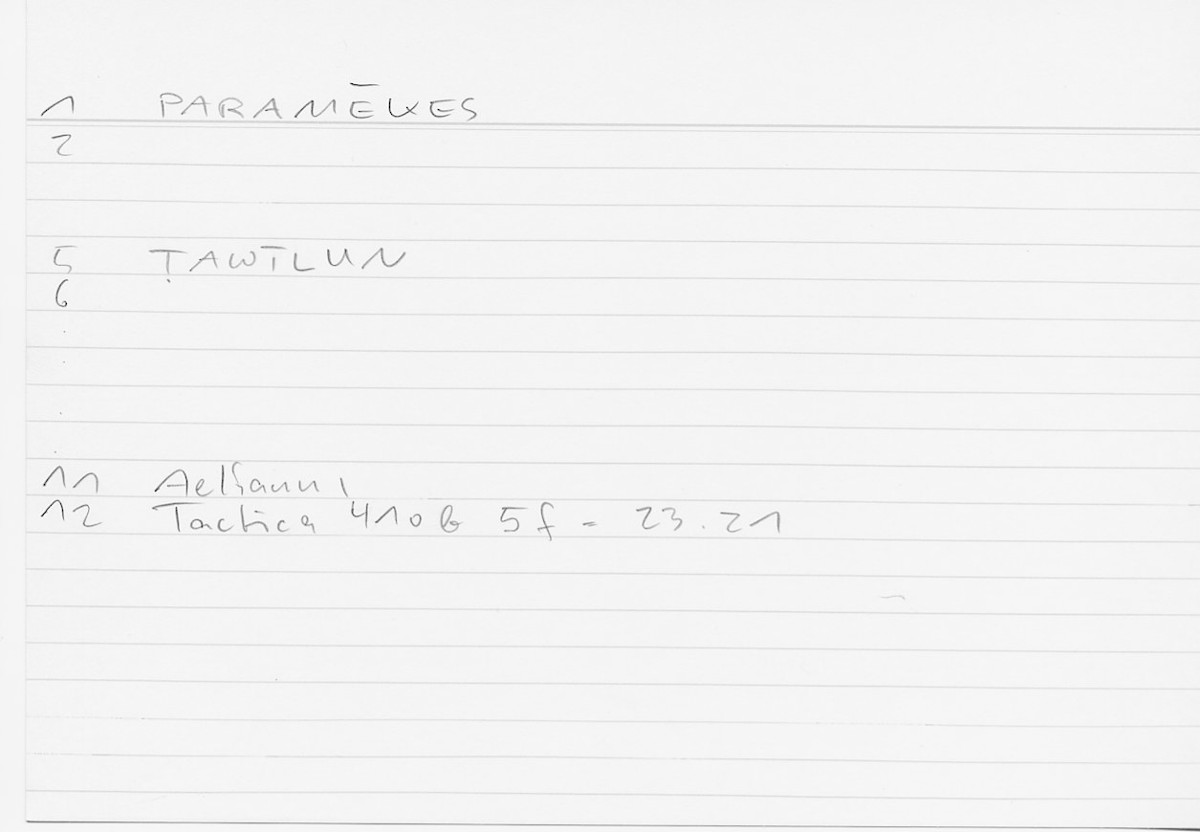 1 PARAMĒKES
2
5 ṬAWĪLUN
6
11 Aeliani
12 Tactica 410b 5f = 23.21